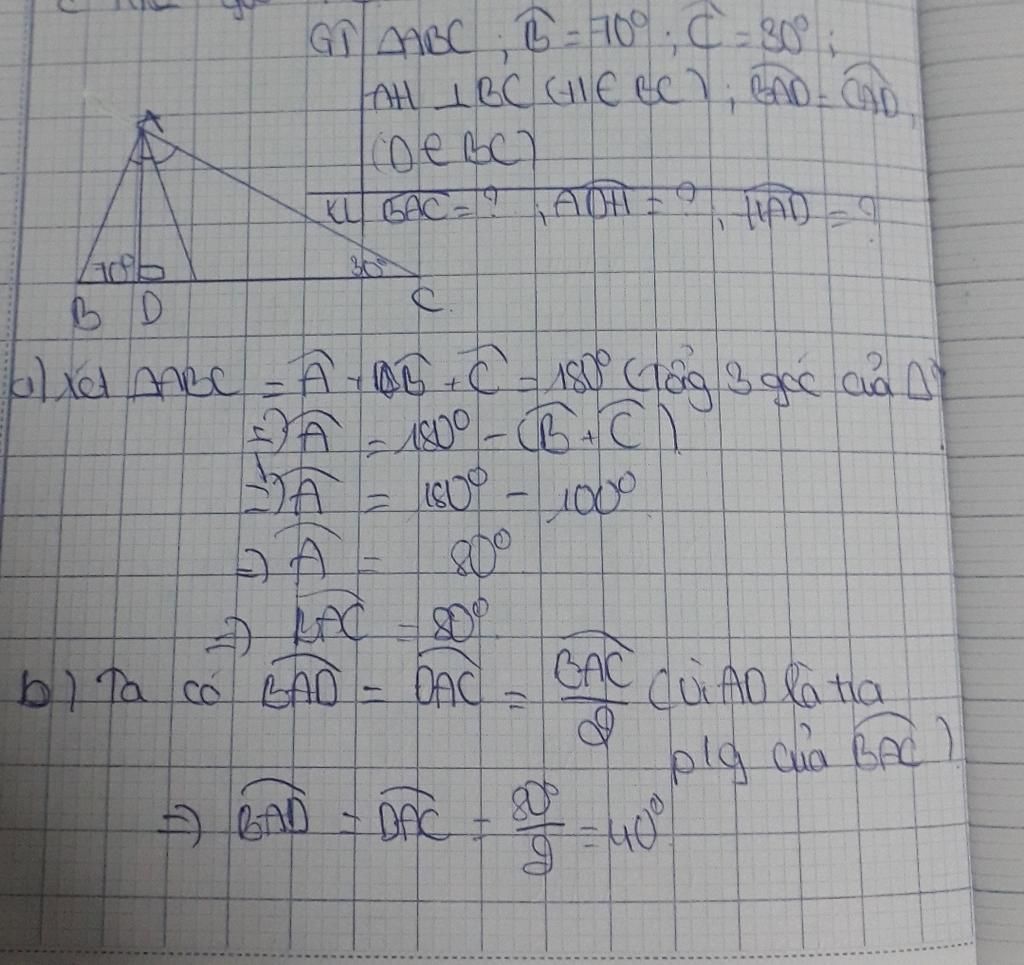 GT ΔABC ; B̂ = 70° ; Ĉ = 30° ;
AH ⊥ BC (H ∈ BC) ; BAD̂ = CAD̂,
(D ∈ BC)
KL BAĈ = ? , ADĤ = ? , HAD̂ = ?
A
70° 30°
B D C
a) Xét ΔABC = Â + B̂ + Ĉ = 180° (Tổng 3 góc của Δ)
=> Â = 180° - (B̂ + Ĉ)
=> Â = 180° - 100°
=> Â = 80°
=> BAĈ = 80°
b) Ta có BAD̂ = DAĈ = BAĈ/2 (Vì AD là tia
p/g của BAĈ)
=> BAD̂ = DAĈ = 80°/2 = 40°